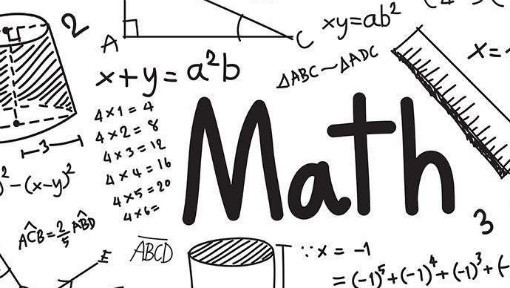 2
A
C
xy=ab²
x=-
x+y=a²b
△ABC~△ADC
4×1=4
4×2=8
4×3=12
4×4=16
4×5=20
4×6=
Math
3
²-(x-y)²
AĈB=2/5 AB̂D
3
E
ABCD
∵x=-1
=(-1)⁵+(-1)⁴+(-1)³+(-